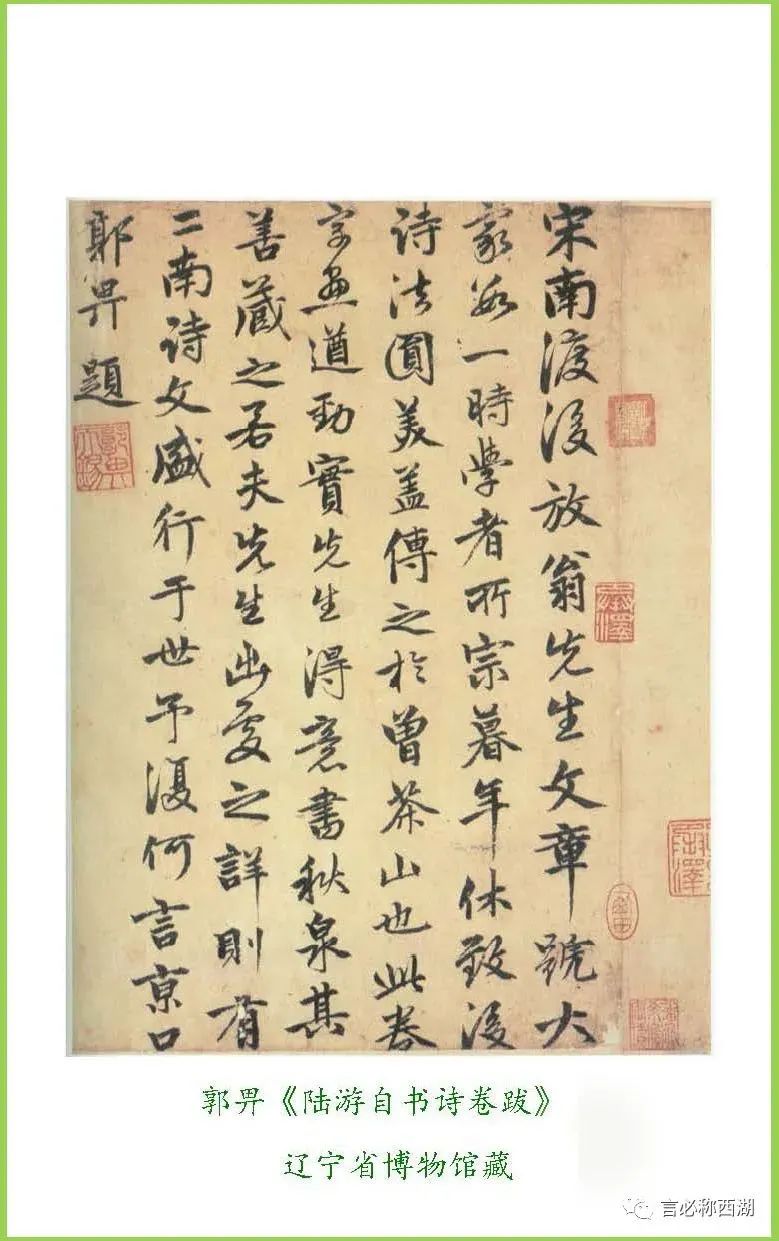 宋南渡後放翁先生文章號大
家數一時學者所宗暮年休致後
詩法圓美蓋傳之於曾茶山也此卷
字畫遒勁實先生得意書秋泉其
善藏之若夫先生出處之詳則有
二南詩文盛行于世予復何言京口
郭畀題
郭畀《陆游自书诗卷跋》
辽宁省博物馆藏
言必称西湖